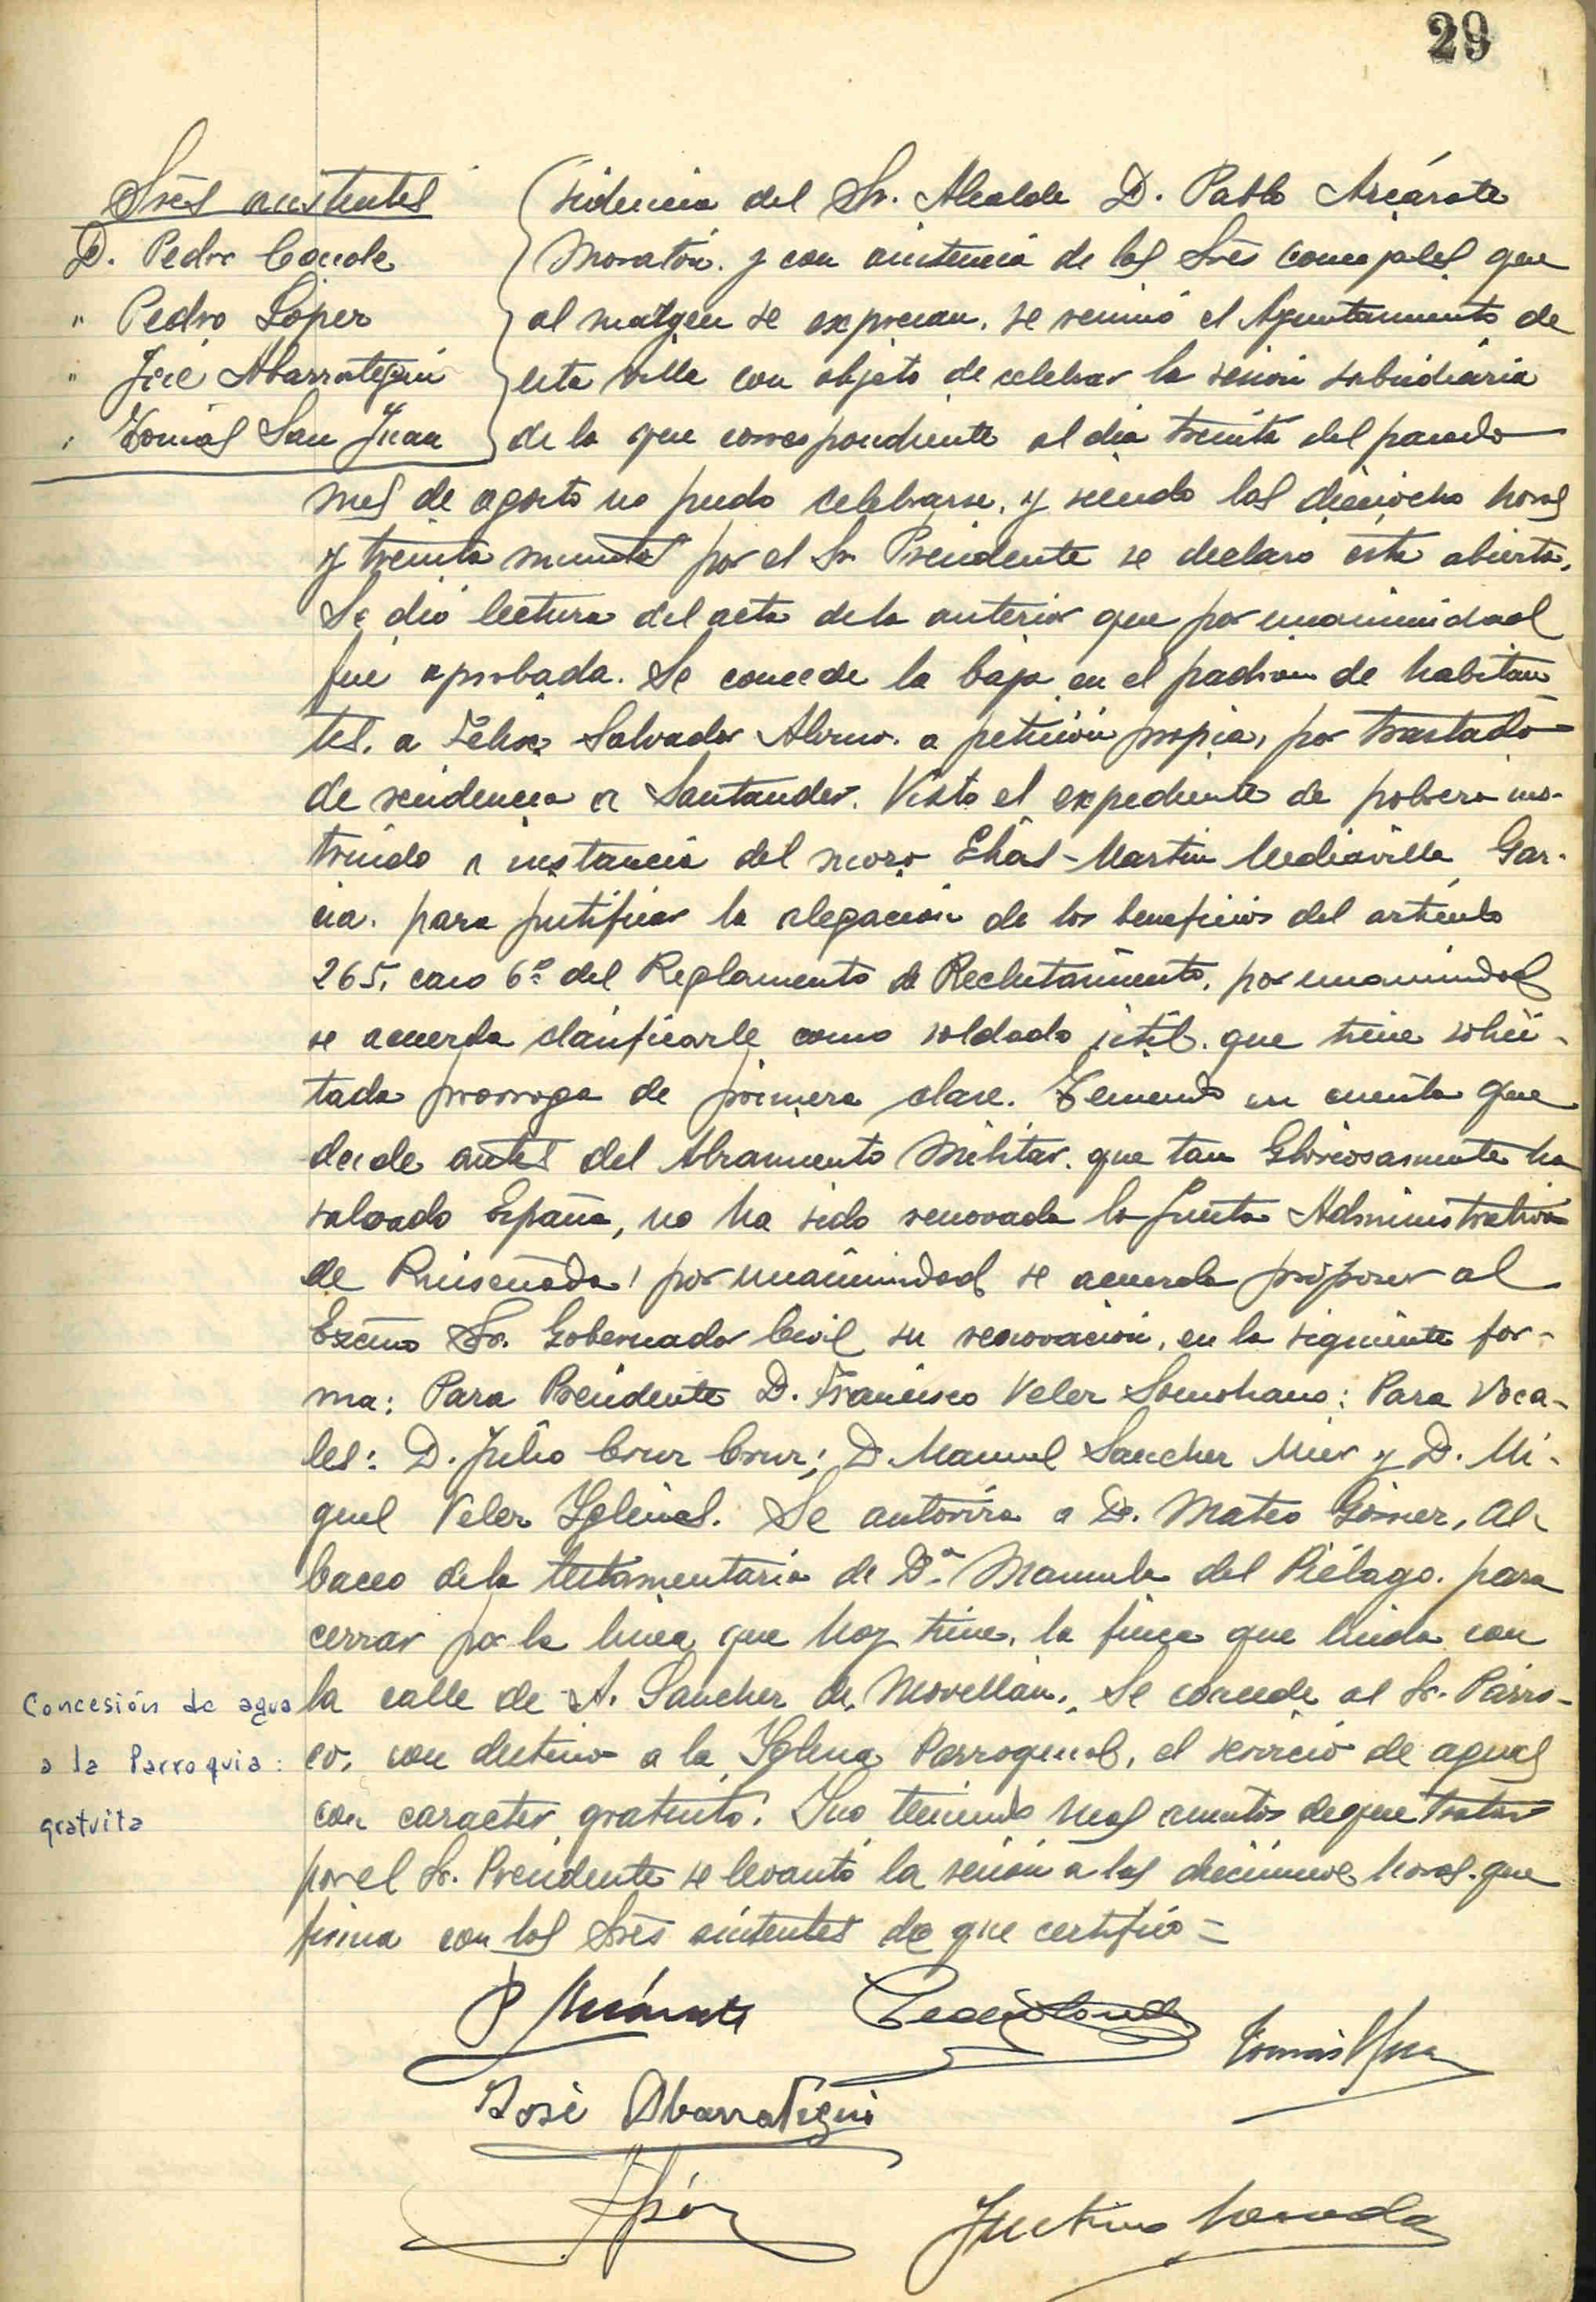 29
Sres asistentes
D. Pedro Conde
" Pedro López
" José Abarrategui
" Tomás San Juan
sidencia del Sr. Alcalde D. Pablo Azcárate
Moratón. y con asistencia de los Sres concejales que
al margen se expresan, se reunió el Ayuntamiento de
esta villa con objeto de celebrar la sesion subsidiaria
de la que correspondiente al dia treinta del pasado
mes de agosto no pudo celebrarse, y siendo las dieciocho horas
y treinta minutos por el Sr Presidente se declaro esta abierta.
Se dió lectura del acta de la anterior que por unanimidad
fué aprobada. Se concede la baja en el padron de habitan-
tes, a Felix Salvador Alonso. a petición propia, por traslado
de residencia a Santander. Visto el expediente de pobreza ins-
truido a instancia del mozo Elías-Martin Mediavilla Gar-
cia. para justificar la alegación de los beneficios del artículo
265, caso 6º del Reglamento de Reclutamiento, por unanimidad
se acuerda clasificarle como soldado útil. que tiene solici-
tada prorroga de primera clase. Teniendo en cuenta que
desde antes del Alzamiento Militar. que tan Gloriosamente ha
salvado España, no ha sido renovada la Junta Administrativa
de Ruiseñada, por unanimidad se acuerda proponer al
Excmo Sr. Gobernador Civil su renovación, en la siguiente for-
ma: Para Presidente D. Francisco Velez Somohano: Para Voca-
les: D. Julio Cruz Cruz; D. Manuel Sanchez Mier y D. Mi-
guel Velez Iglesias. Se autoriza a D. Mateo Gómez, Al-
bacea de la testamentaria de Dª. Manuela del Piélago. para
cerrar por la linea que hoy tiene, la finca que linda con
la calle de A. Sanchez de Movellán. Se concede al Sr. Párro-
co, con destino a la Iglesia Parroquial, el servicio de aguas
con caracter gratuito. Y no teniendo mas asuntos de que tratar
por el Sr. Presidente se levantó la sesión a las diecinueve horas. que
firma con los Sres asistentes de que certifico =
Concesión de agua
a la Parroquia:
gratuita
P Azcárate Pedro Conde Tomás S Juan
José Abarrategui